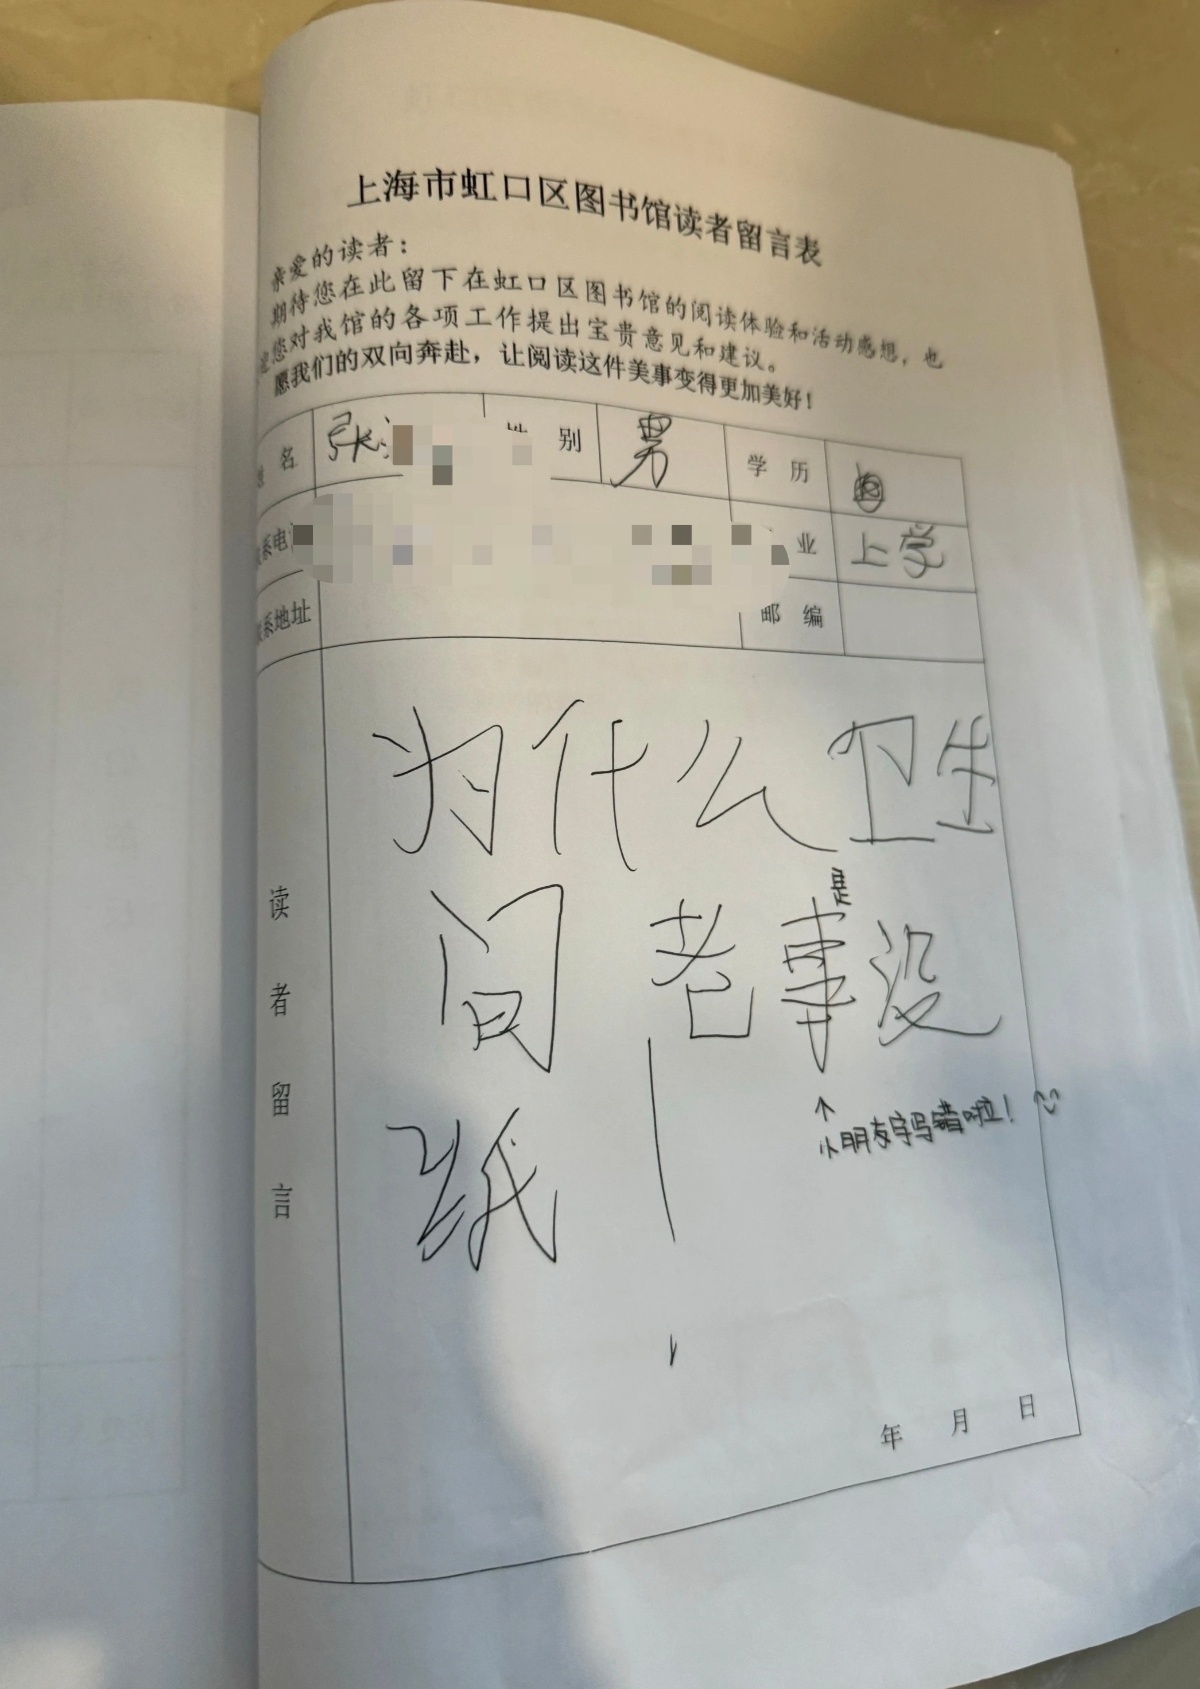 上海市虹口区图书馆读者留言表
亲爱的读者：
期待您在此留下在虹口区图书馆的阅读体验和活动感想，也
您对我馆的各项工作提出宝贵意见和建议。
愿我们的双向奔赴，让阅读这件美事变得更加美好！
名 张 别 男 学 历
系电 业 上学
系地址 邮 编
读者留言
为什么卫生
间老事没
是
纸
↑
小朋友字写错啦！
年 月 日